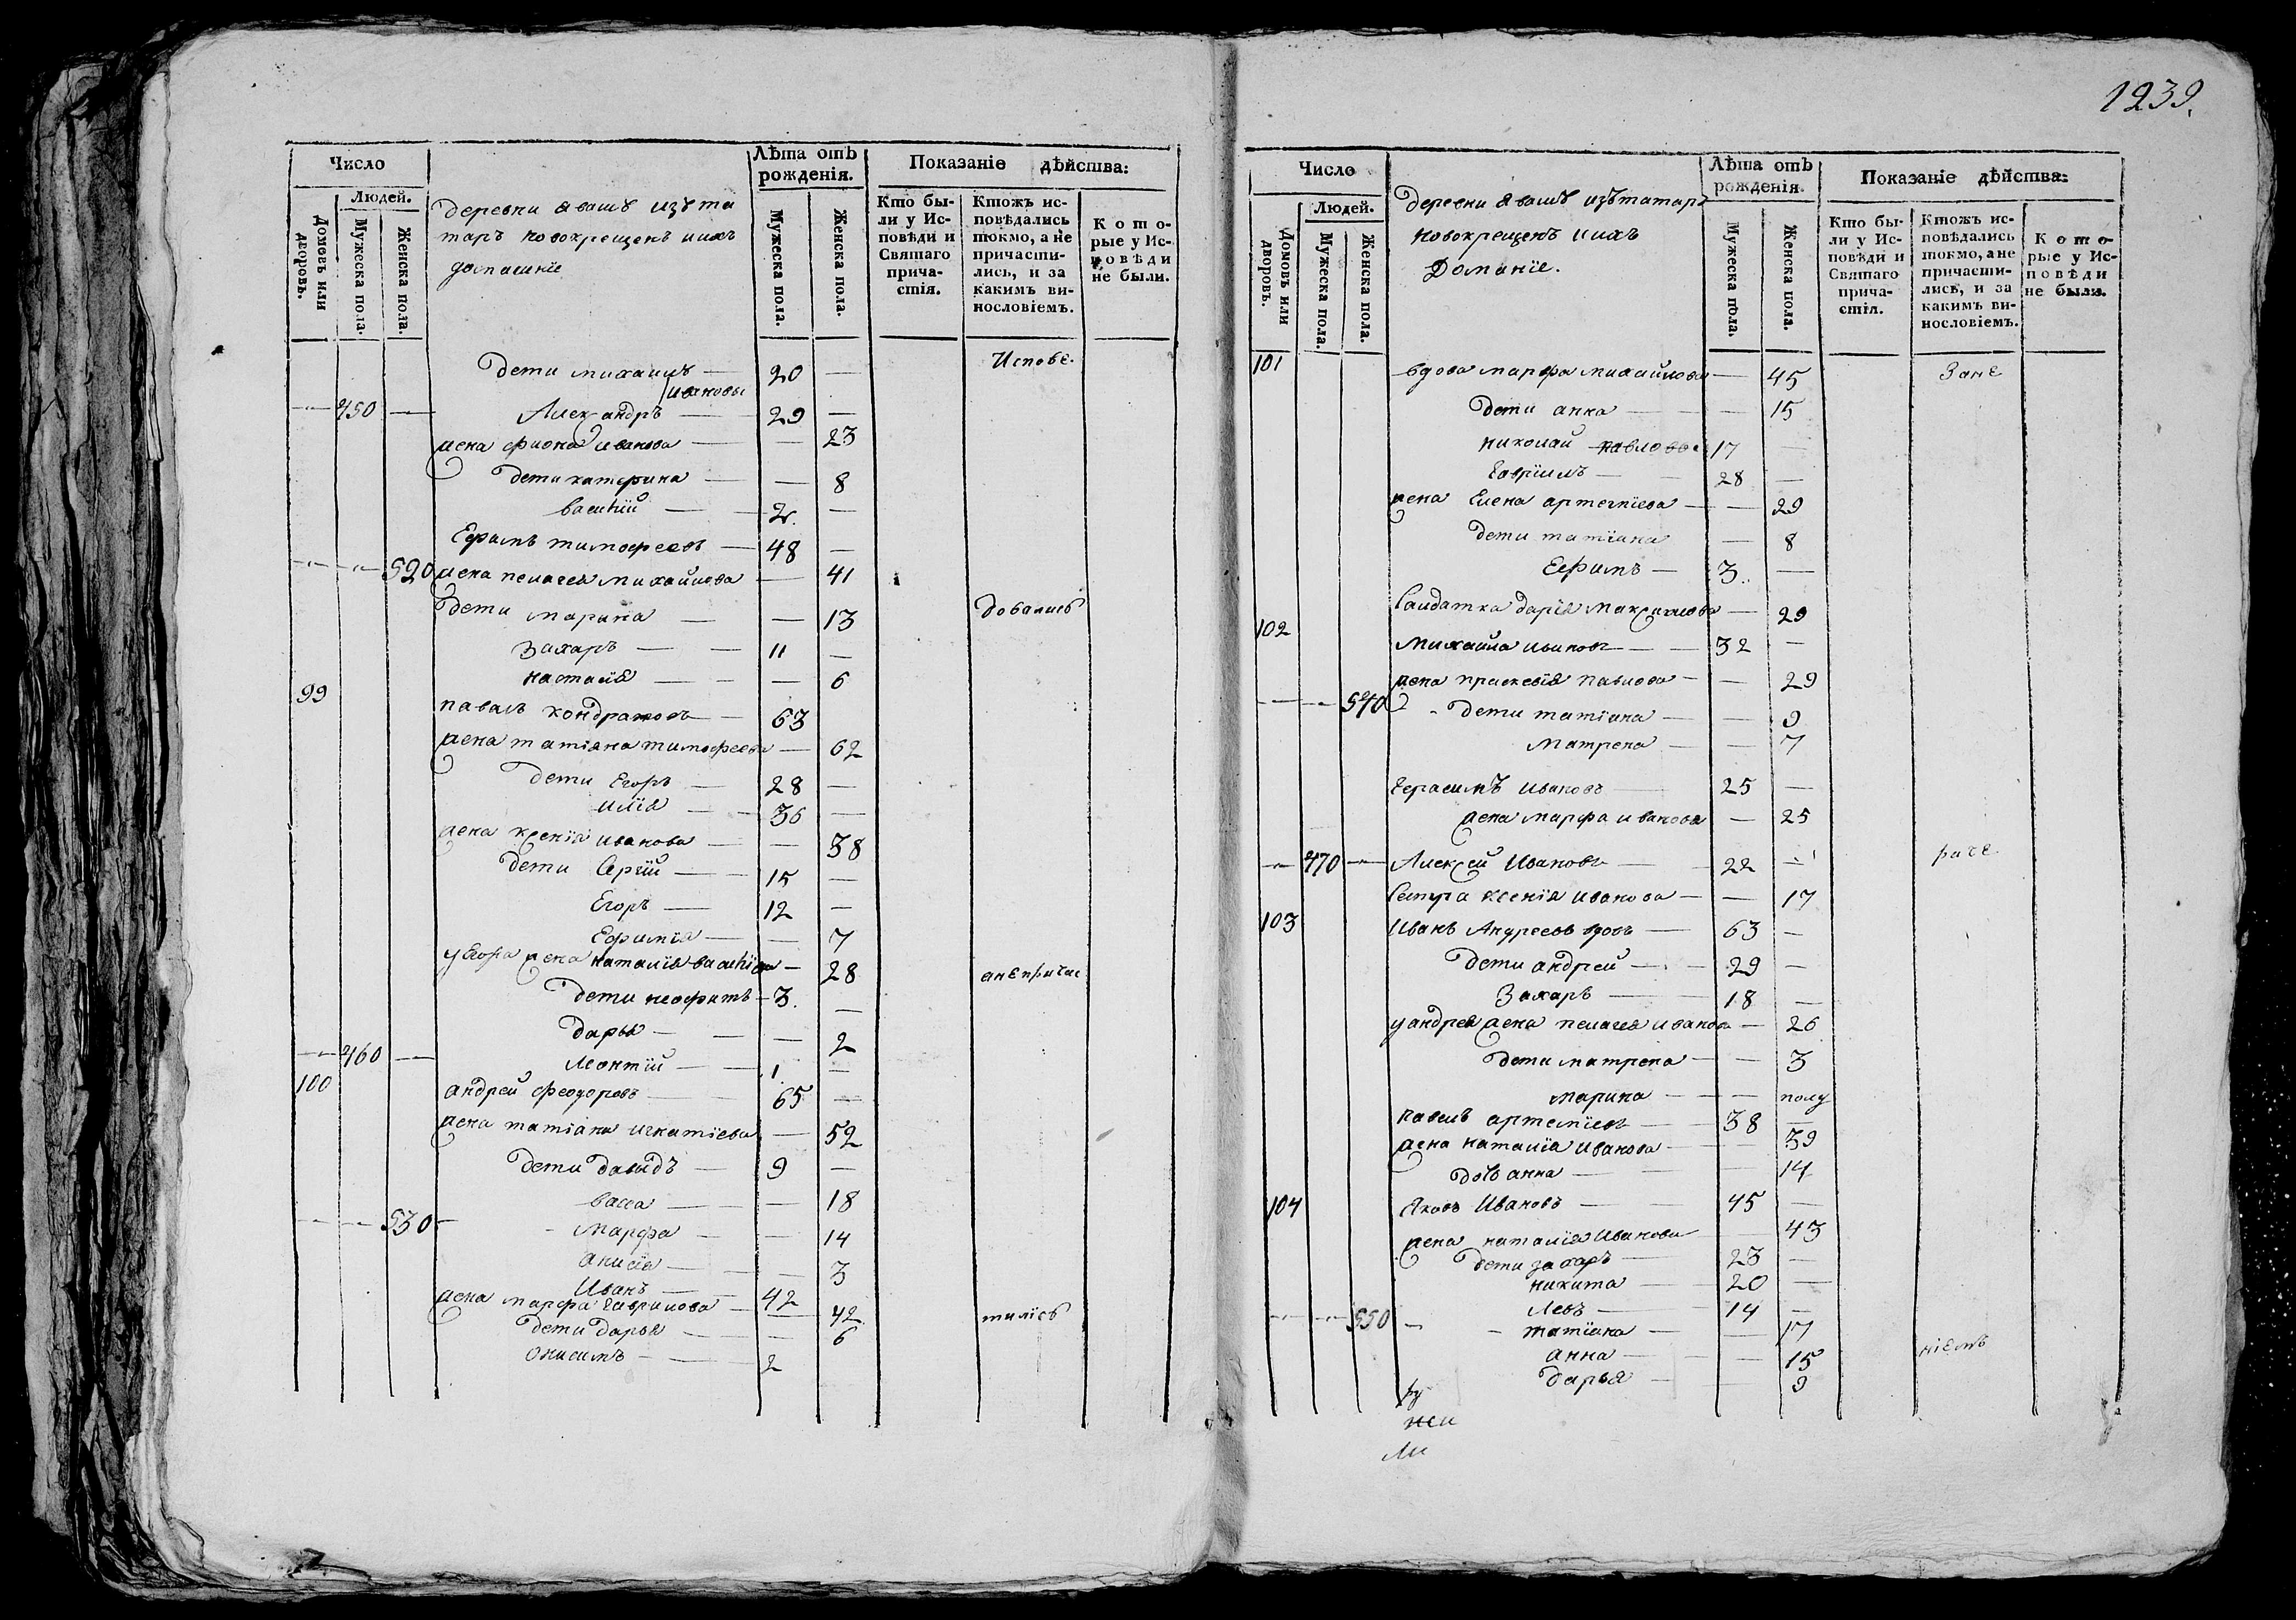 Число
Людей.
Домовъ или дворовъ.
Мужеска пола.
Женска пола.
деревни Явашъ изъ та
таръ новокрещенъ иихъ
домашніе
Лѣта отъ рожденія.
Мужеска пола.
Женска пола.
Показаніе дѣйства:
Кто бы-
ли у Ис-
повѣди и
Святаго
прича-
стія.
Ктожъ ис-
повѣдались
токмо, а не
причасти-
лись, и за
какимъ ви-
нословіемъ.
К о т о-
рые у Ис-
п о в ѣ д и
не были.
дети михаилъ — 20 — Испове
ивановы
450 Александръ — 29 —
жена фиона иванова — — 23
дети катерина — — 8
василій — 2. —
Ефимъ тимофеевъ — 48 —
520 жена пелагея михайлова — 41
дети марина — — 13 довались
Захаръ — — 11 —
наталія — — — 6
99
павелъ кондратовъ — 63
жена татіана тимофеева — 62
дети Егоръ — 28 —
илія — 36 —
жена ксенія иванова — — 38
дети Сергій — 15 —
Егоръ — 12 —
Ефимія — — 7
у Егора жена наталія василіева — 28 анепричас
дети неофитъ — 3. —
дарья — — 2
460 Леонтій — 1. —
100
андрей феодоровъ — 65 —
жена татіана игнатіева — 52
дети давидъ — 9 —
васса — — 18
530 марфа — — 14
анисія — — 3
Иванъ — 42
жена марфа гаврилова — 42 тилісь
дети дарья — — 6
онисимъ — 2
1239.
Число
Людей.
Домовъ или дворовъ.
Мужеска пола.
Женска пола.
деревни Явашъ изътатаръ
новокрещенъ иихъ
Доманіе.
Лѣта отъ рожденія.
Мужеска пола.
Женска пола.
Показаніе дѣйства:
Кто бы-
ли у Ис-
повѣди и
Святаго
прича-
стія.
Ктожъ ис-
повѣдались
токмо, а не
причасти-
лись, и за
какимъ ви-
нословіемъ.
К о т о-
рые у Ис-
п о в ѣ д и
не были.
101 вдова марфа михайлова — 45 Зане
дети анна — — 15
николай павловы 17 —
Гавріилъ — 28 —
жена Елена артемпіева — — 29
дети татіана — 8
Ефимъ — 3. —
Салдатка дарія максимова — 29
102
михайла ивановъ — 32 —
жена праскевія павлова — — 29
540 дети татіана — — 9
матрена — — 7
герасимъ ивановъ — 25 —
жена марфа иванова — 25
470 Алексей Ивановъ — 22 — раче
Сестра ксенія иванова — — 17
103 Иванъ Андреевъ вдовъ — 63 —
дети андрей — 29 —
Захаръ — 18 —
у андрея жена пелагея иванова — 26
дети матрена — — 3
марина — — полу
павелъ артеміевъ — 38 —
жена наталія иванова — 39
дочь анна — — 14
104 Яковъ Ивановъ — 45 —
жена наталія Иванова — 43
дети захаръ — 23 —
никита — 20 —
Левъ — 14 —
550 татіана — — 17
анна — — 15 ніемъ
дарья — — 9
ру
жеи
Ли